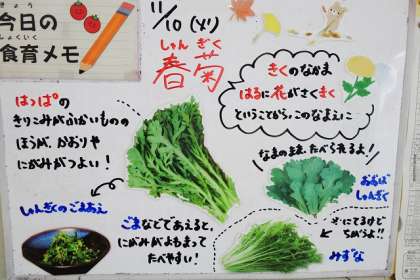 きょう
今日の
しょくいく
食育メモ
11/10(メリ)
しゅんぎく
春菊
きくのなかま
はるに花がさくきく
ということから、このなまえに
はっぱの
きりこみがふかいものの
ほうが、かおりや
にがみがつよい!
なまのままたべられるよ!
おおば
しゅんぎく
しゅんぎくのごまあえ
ごまなどであえると、
にがみがよわまって
たべやすい!
※にてるけど
ちがうよ!!
みずな